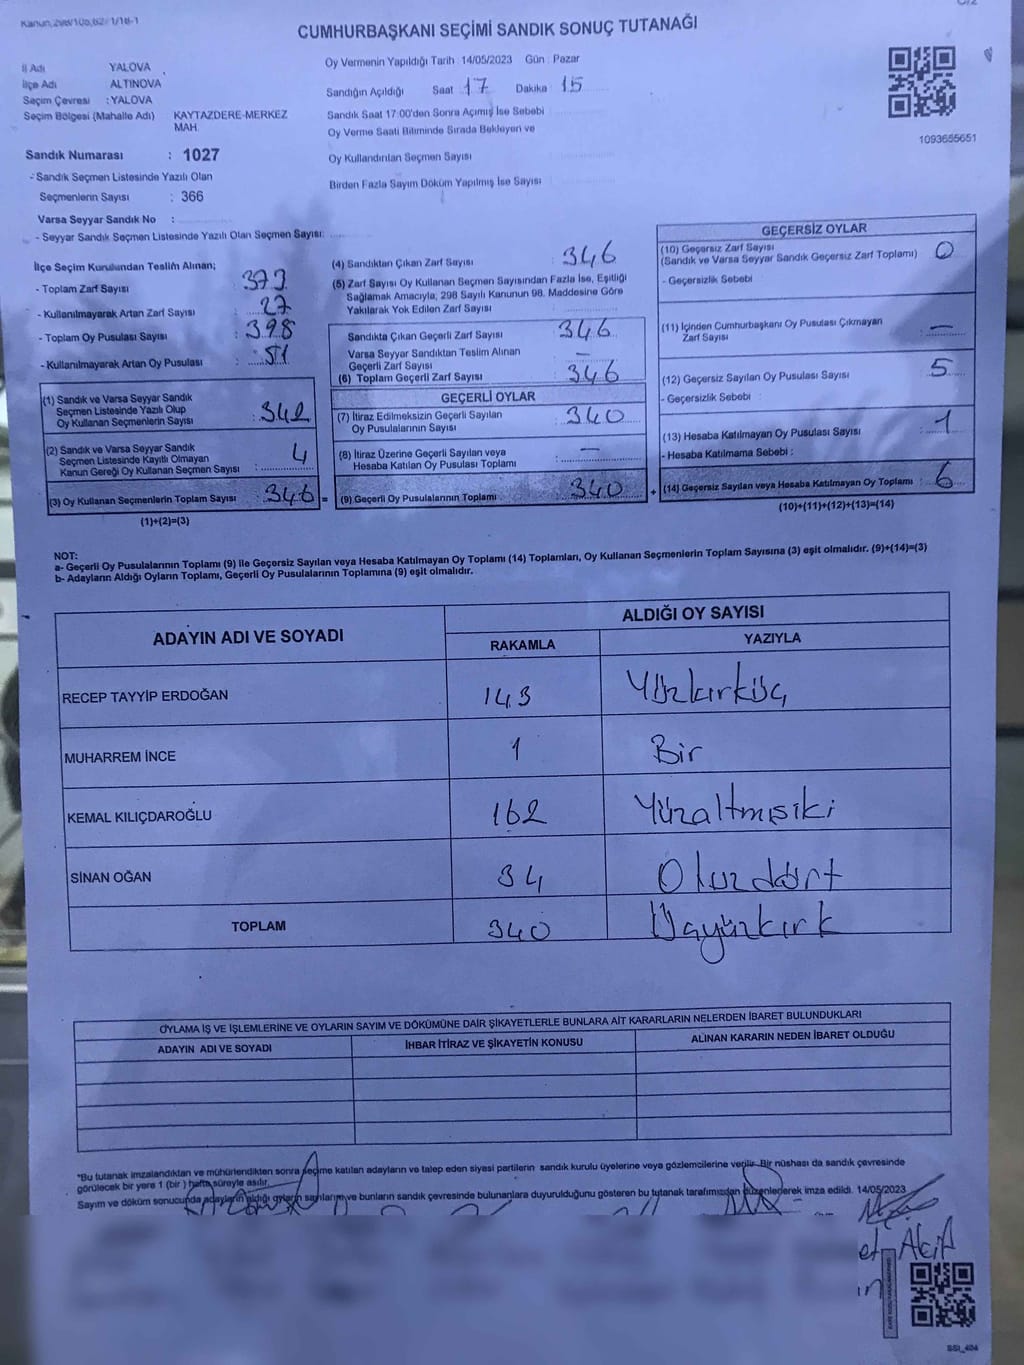 Kanun,298/105,62: 1/18-1
CUMHURBAŞKANI SEÇİMİ SANDIK SONUÇ TUTANAĞI
İl Adı YALOVA
İlçe Adı ALTINOVA
Seçim Çevresi : YALOVA
Seçim Bölgesi (Mahalle Adı) KAYTAZDERE-MERKEZ
MAH.
Sandık Numarası : 1027
- Sandık Seçmen Listesinde Yazılı Olan
Seçmenlerin Sayısı : 366
Varsa Seyyar Sandık No :
- Seyyar Sandık Seçmen Listesinde Yazılı Olan Seçmen Sayısı:
Oy Vermenin Yapıldığı Tarih : 14/05/2023 Gün : Pazar
Sandığın Açıldığı Saat 17 Dakika 15
Sandık Saat 17:00'den Sonra Açımış İse Sebebi
Oy Verme Saati Bitiminde Sırada Bekleyen ve
Oy Kullandırılan Seçmen Sayısı
Birden Fazla Sayım Döküm Yapılmış İse Sayısı
1093655651
İlçe Seçim Kurulundan Teslim Alınan;
- Toplam Zarf Sayısı : 373
- Kullanılmayarak Artan Zarf Sayısı : 27
- Toplam Oy Pusulası Sayısı : 398
- Kullanılmayarak Artan Oy Pusulası : 51
(1) Sandık ve Varsa Seyyar Sandık
Seçmen Listesinde Yazılı Olup
Oy Kullanan Seçmenlerin Sayısı : 342
(2) Sandık ve Varsa Seyyar Sandık
Seçmen Listesinde Kayıtlı Olmayan
Kanun Gereği Oy Kullanan Seçmen Sayısı : 4
(3) Oy Kullanan Seçmenlerin Toplam Sayısı : 346 =
(1)+(2)=(3)
(4) Sandıktan Çıkan Zarf Sayısı : 346
(5) Zarf Sayısı Oy Kullanan Seçmen Sayısından Fazla İse, Eşitliği
Sağlamak Amacıyla, 298 Sayılı Kanunun 98. Maddesine Göre
Yakılarak Yok Edilen Zarf Sayısı :
Sandıkta Çıkan Geçerli Zarf Sayısı : 346
Varsa Seyyar Sandıktan Teslim Alınan
Geçerli Zarf Sayısı : —
(6) Toplam Geçerli Zarf Sayısı : 346
GEÇERLİ OYLAR
(7) İtiraz Edilmeksizin Geçerli Sayılan
Oy Pusulalarının Sayısı : 340
(8) İtiraz Üzerine Geçerli Sayılan veya
Hesaba Katılan Oy Pusulası Toplamı : —
(9) Geçerli Oy Pusulalarının Toplamı : 340 +
GEÇERSİZ OYLAR
(10) Geçersiz Zarf Sayısı
(Sandık ve Varsa Seyyar Sandık Geçersiz Zarf Toplamı) : 0
- Geçersizlik Sebebi
(11) İçinden Cumhurbaşkanı Oy Pusulası Çıkmayan
Zarf Sayısı : —
(12) Geçersiz Sayılan Oy Pusulası Sayısı : 5
- Geçersizlik Sebebi :
(13) Hesaba Katılmayan Oy Pusulası Sayısı : 1
- Hesaba Katılmama Sebebi :
(14) Geçersiz Sayılan veya Hesaba Katılmayan Oy Toplamı : 6
(10)+(11)+(12)+(13)=(14)
NOT:
a- Geçerli Oy Pusulalarının Toplamı (9) ile Geçersiz Sayılan veya Hesaba Katılmayan Oy Toplamı (14) Toplamları, Oy Kullanan Seçmenlerin Toplam Sayısına (3) eşit olmalıdır. (9)+(14)=(3)
b- Adayların Aldığı Oyların Toplamı, Geçerli Oy Pusulalarının Toplamına (9) eşit olmalıdır.
ADAYIN ADI VE SOYADI ALDIĞI OY SAYISI
RAKAMLA YAZIYLA
RECEP TAYYİP ERDOĞAN 143 Yüzkırküç
MUHARREM İNCE 1 Bir
KEMAL KILIÇDAROĞLU 162 Yüzaltmışiki
SİNAN OĞAN 34 Otuzdört
TOPLAM 340 Üçyüzkırk
OYLAMA İŞ VE İŞLEMLERİNE VE OYLARIN SAYIM VE DÖKÜMÜNE DAİR ŞİKAYETLERLE BUNLARA AİT KARARLARIN NELERDEN İBARET BULUNDUKLARI
ADAYIN ADI VE SOYADI İHBAR İTİRAZ VE ŞİKAYETİN KONUSU ALINAN KARARIN NEDEN İBARET OLDUĞU
*Bu tutanak imzalandıktan ve mühürlendikten sonra seçime katılan adayların ve talep eden siyasi partilerin sandık kurulu üyelerine veya gözlemcilerine verilir. Bir nüshası da sandık çevresinde
görülecek bir yere 1 (bir ) hafta süreyle asılır.
Sayım ve döküm sonucunda adayların aldığı oyların sayılarını ve bunların sandık çevresinde bulunanlara duyurulduğunu gösteren bu tutanak tarafımızdan düzenlenerek imza edildi. 14/05/2023
et Akif
SSI_404